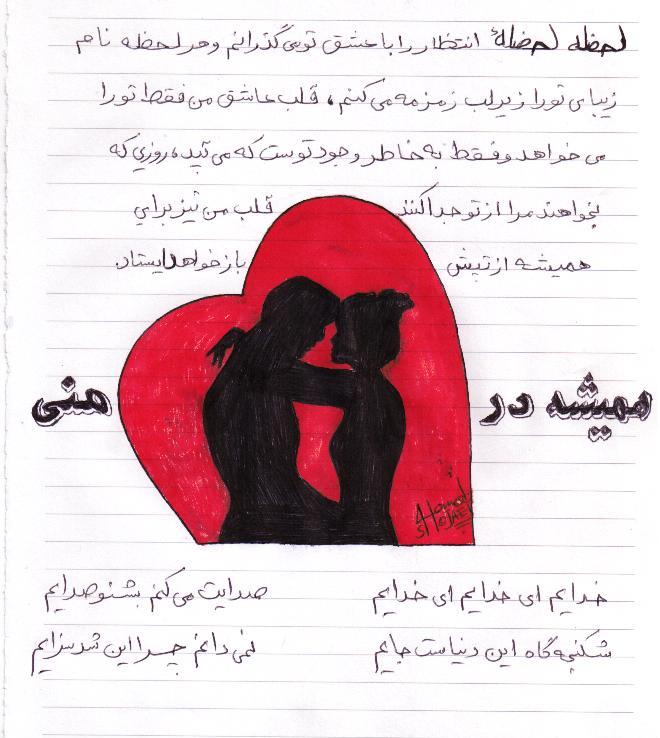 لحظه لحضهٔ انتظار را با عشق تو می گذرانم و هر لحظه نام
زیبای تو را زیر لب زمزمه می کنم، قلب عاشق من فقط تو را
می خواهد و فقط به خاطر وجود توست که می تپد، روزی که
بخواهند مرا از تو جدا کنند قلب من نیز برای
همیشه از تپش باز خواهد ایستاد.
همیشه در منی
Hamed
SHOJAEI
خدایم ای خدایم ای خدایم صدایت می کنم بشنو صدایم
شکنجه گاه این دنیاست جایم نمی دانم چرا این شد سزایم